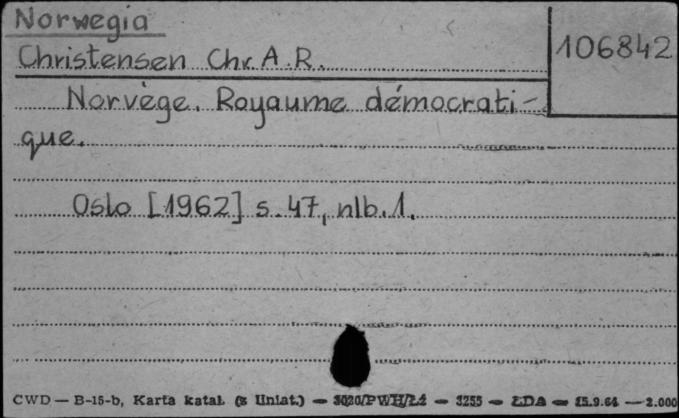 Norwegia
106842
Christensen Chr. A. R.
Norvège. Royaume démocrati-
que.
Oslo [1962] s. 47, nlb. 1.
CWD — B-15-b, Karta katal. (s Uniat.) — — 3255 — ŁDA — 15.9.64 — 2.000